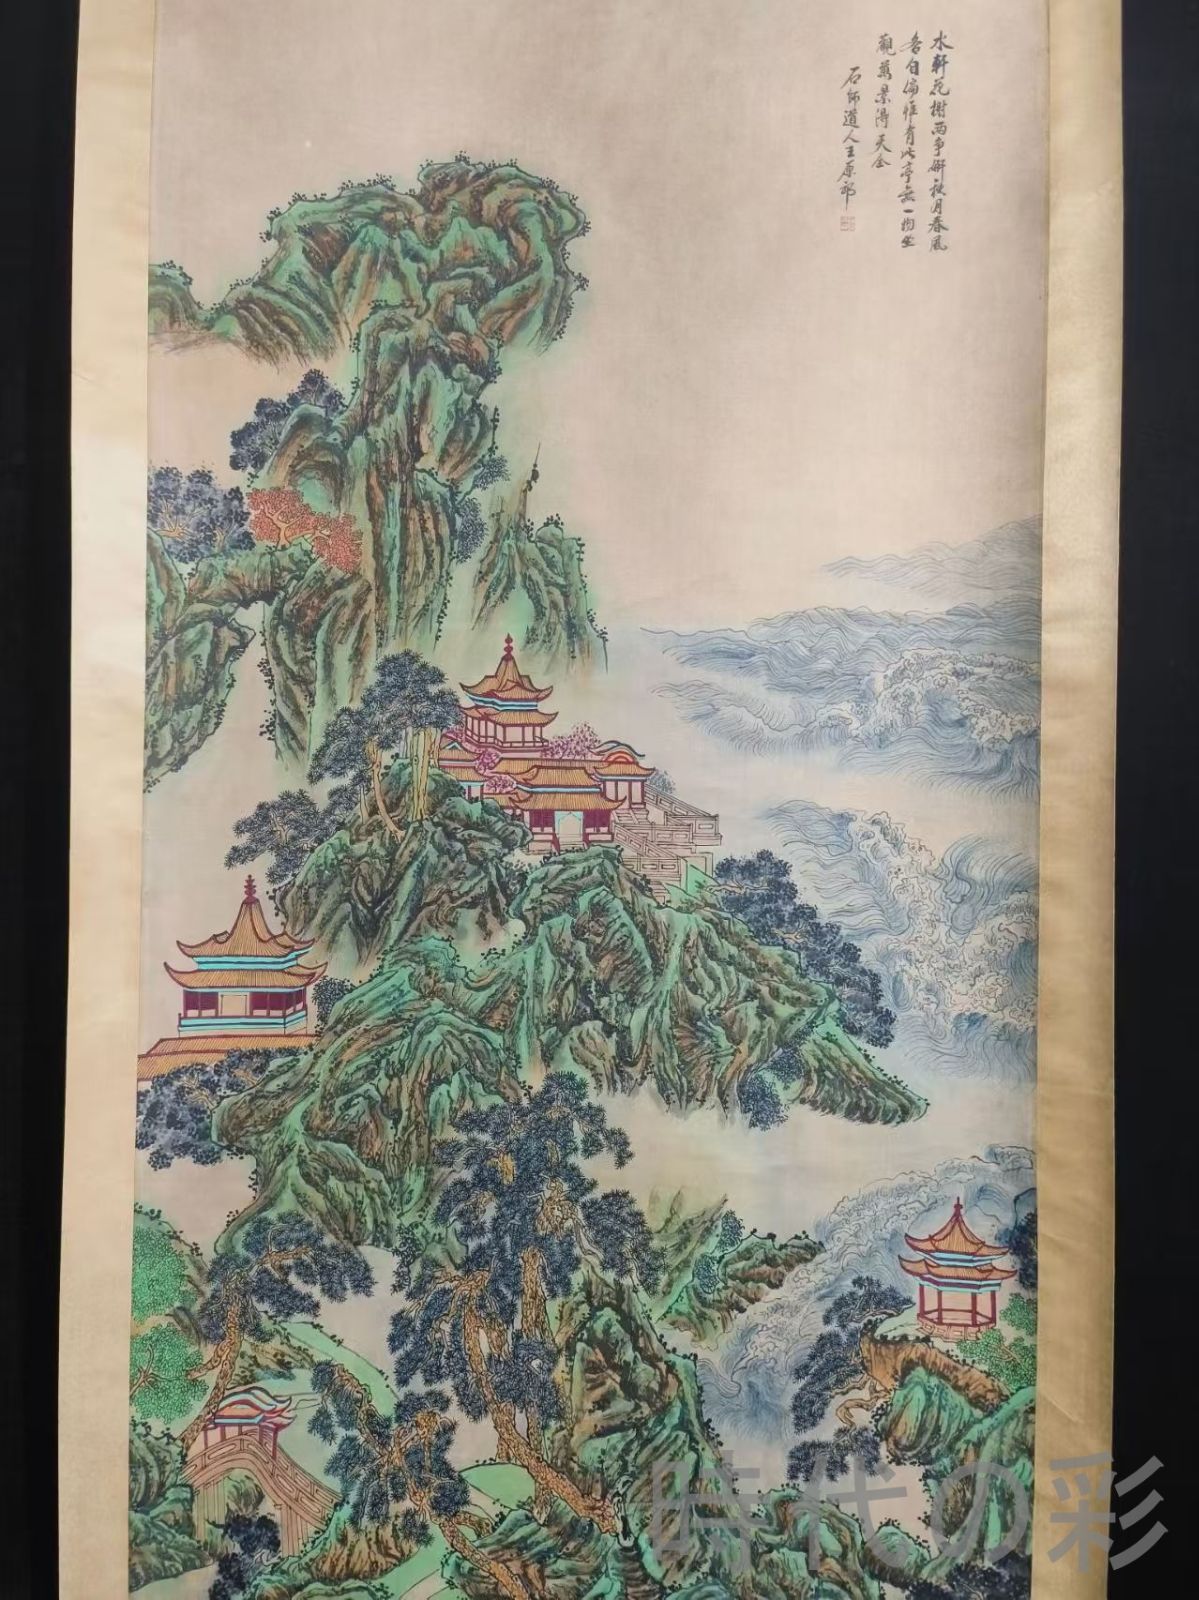 水軒花榭兩爭妍秋月春風
各自偏惟有此亭無一物坐
觀萬景得天全
石師道人王原祁
時代の彩